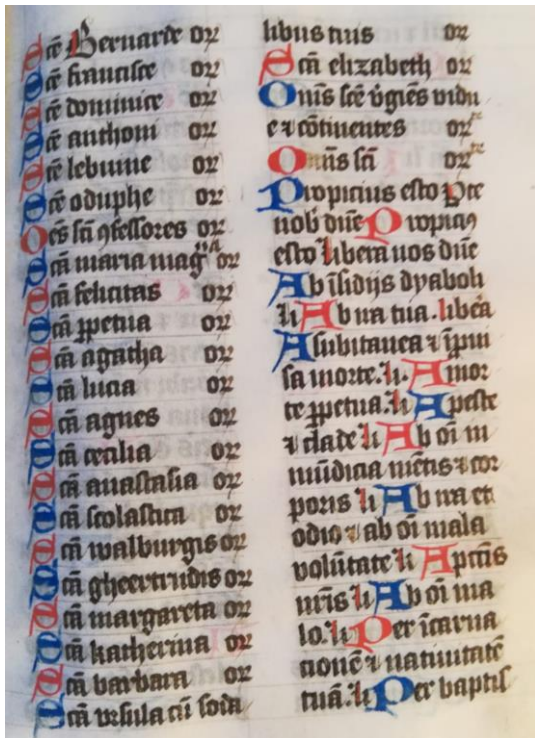 Scē Bernarde or
Scē francisce or
Scē dominice or
Scē anthoni or
Scē lebuine or
Scē oduphe or
Oēs sci ꝯfessores or
Scā maria magᵃ or
Scā felicitas or
Scā ꝑpetua or
Scā agatha or
Scā lucia or
Scā agnes or
Scā cecilia or
Scā anastasia or
Scā scolastica or
Scā walburgis or
Scā gheertrudis or
Scā margareta or
Scā katherina or
Scā barbara or
Scā vrsula cū soda
libus tuis or
Scā elizabeth or
Om̄s scē v̓gīes vidu
e ⁊ cōtinentes or
Om̄s sci or
Propicius esto ꝑce
nob̄ dn̄e Propicius
esto libera nos dn̄e
Ab īsidijs dyaboli
li Ab ira tua. libera
A subitanea ⁊ īpui
sa morte. li. A mor
te ꝑpetua. li A peste
⁊ clade li Ab oī in
mūdicia mētis ⁊ cor
poris li Ab ira et
odio ⁊ ab oī mala
volūtate li A pctīs
nr̄is li Ab oī ma
lo. li Per īcarna
tionē ⁊ natiuitatē
tuā. li Per baptis